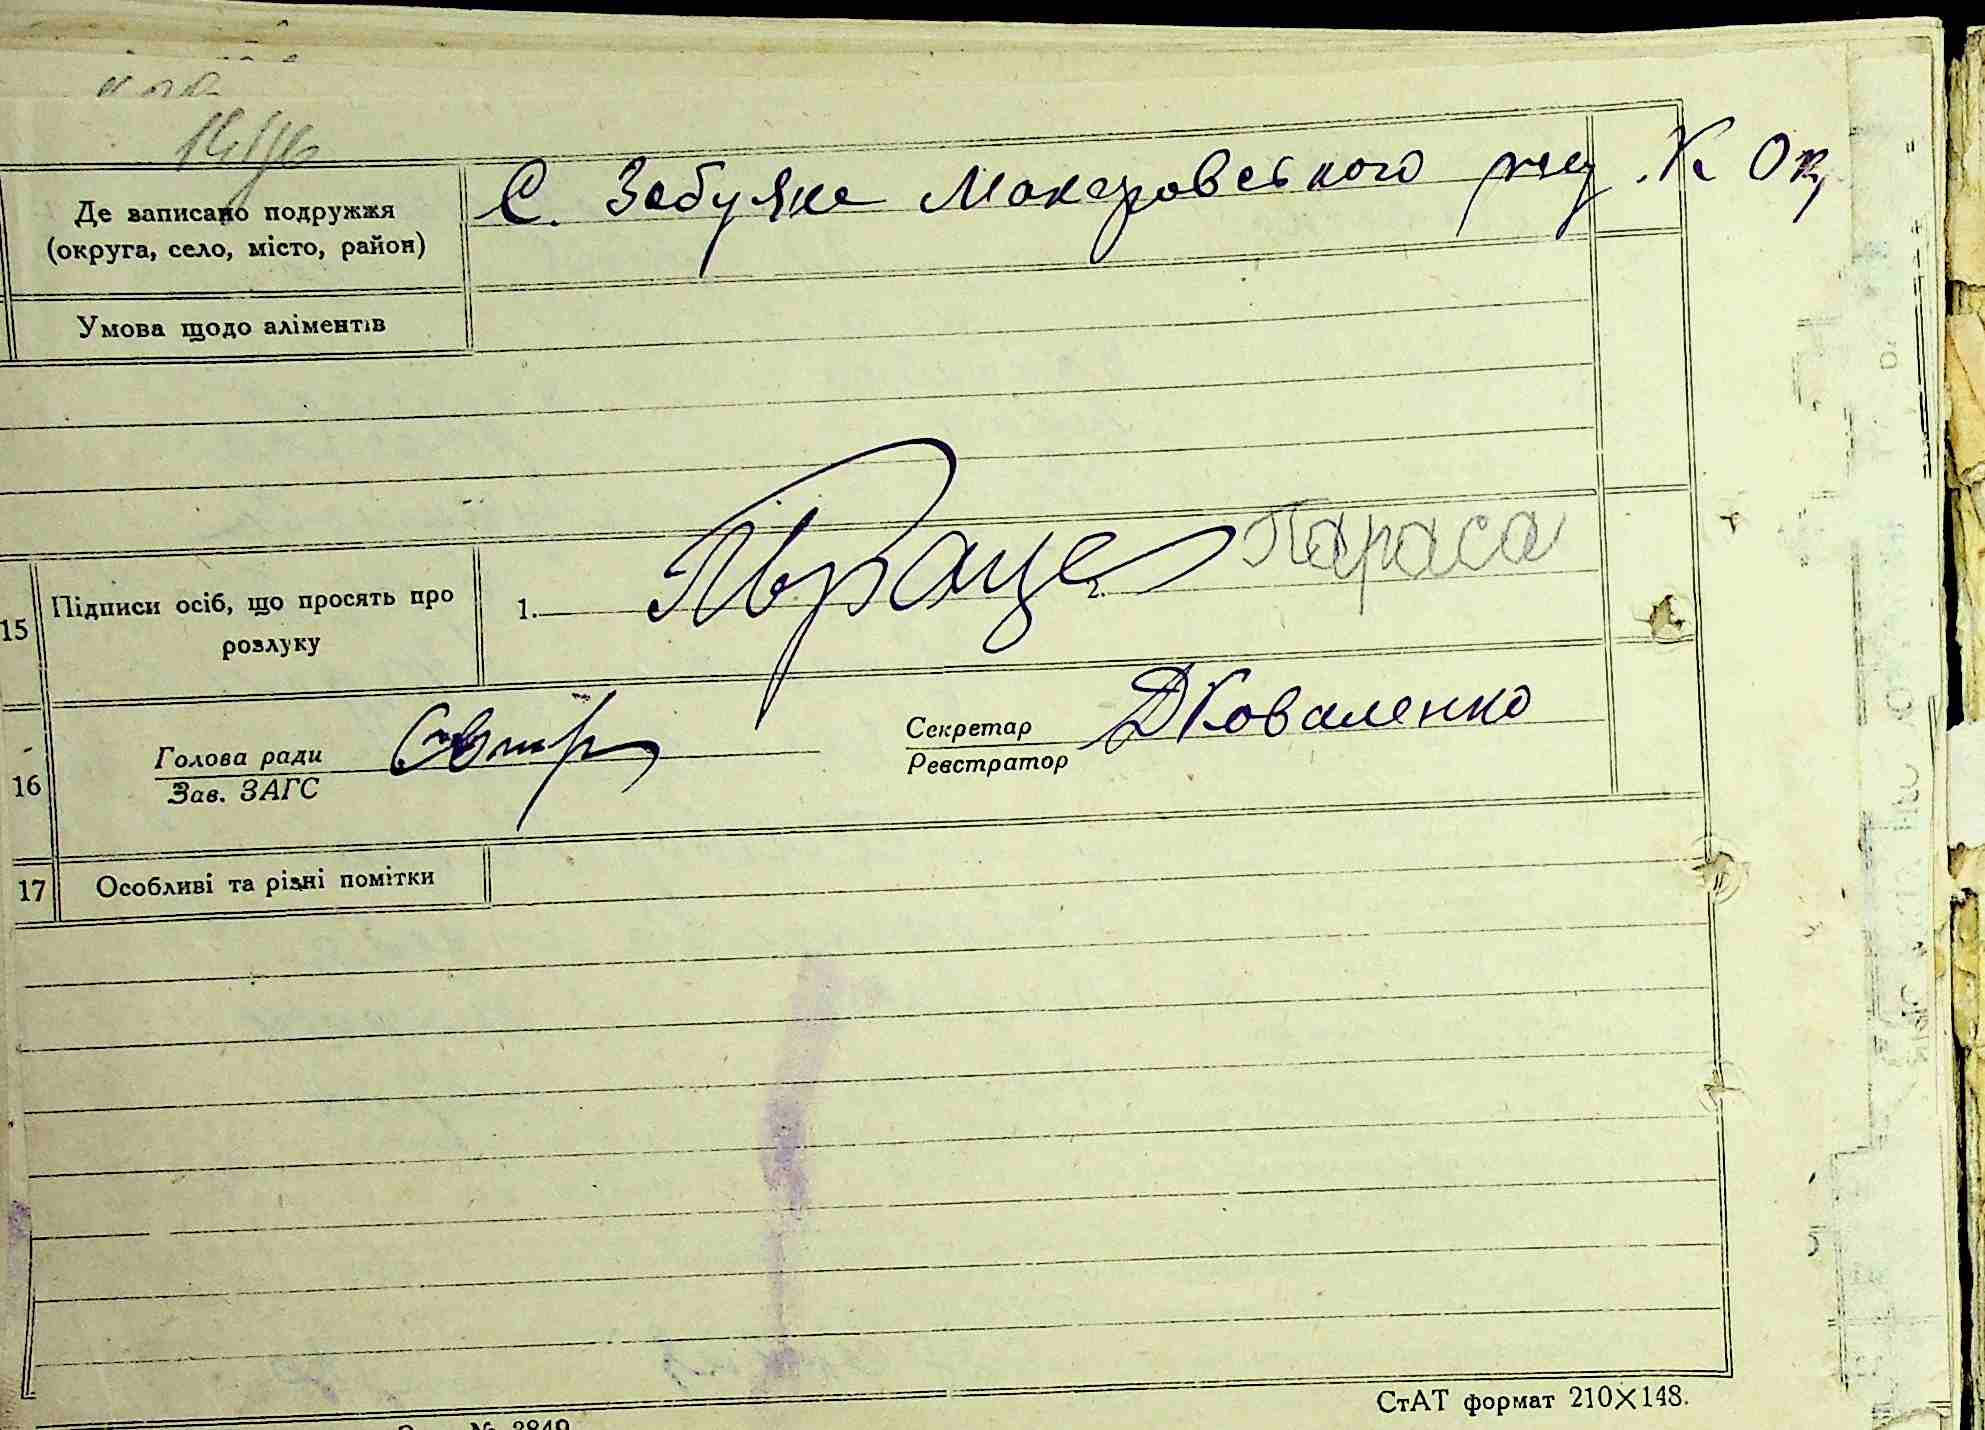 Де записано подружжя
(округа, село, місто, район)
С. Забуяне Макаровського К Ок
Умова щодо аліментів
15
Підписи осіб, що просять про
розлуку
1.
2.
Параса
16
Голова ради
Зав. ЗАГС
Секретар
Реєстратор
ДКоваленко
17
Особливі та різні помітки
№ 3849
СтАТ формат 210×148.